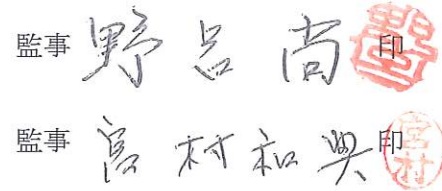 監事 野呂 尚 印
監事 宮村和興 印
宮村